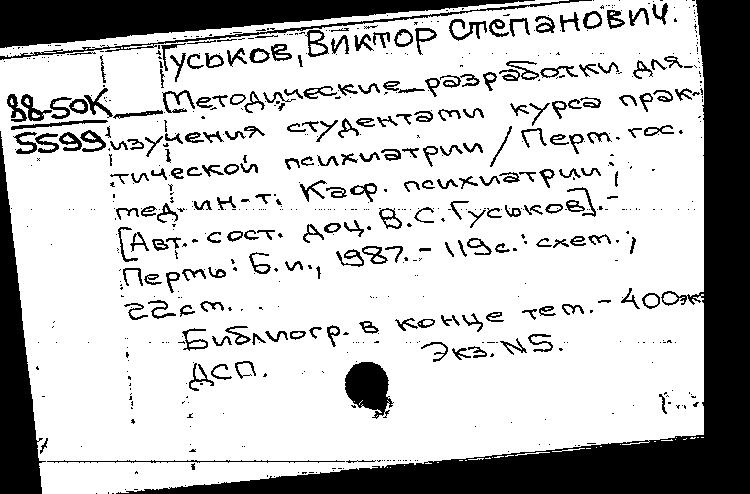 Гуськов, Виктор Степанович.
88-50К Методические разработки для
5599 изучения студентами курса прак-
тической психиатрии / Перм. гос.
мед. ин-т; Каф. психиатрии;
[Авт.-сост. доц. В.С. Гуськов]. -
Пермь: Б.и., 1987. - 119с.: схем.;
22см.
Библиогр. в конце тем. - 400экз
ДСП. Экз. N5.